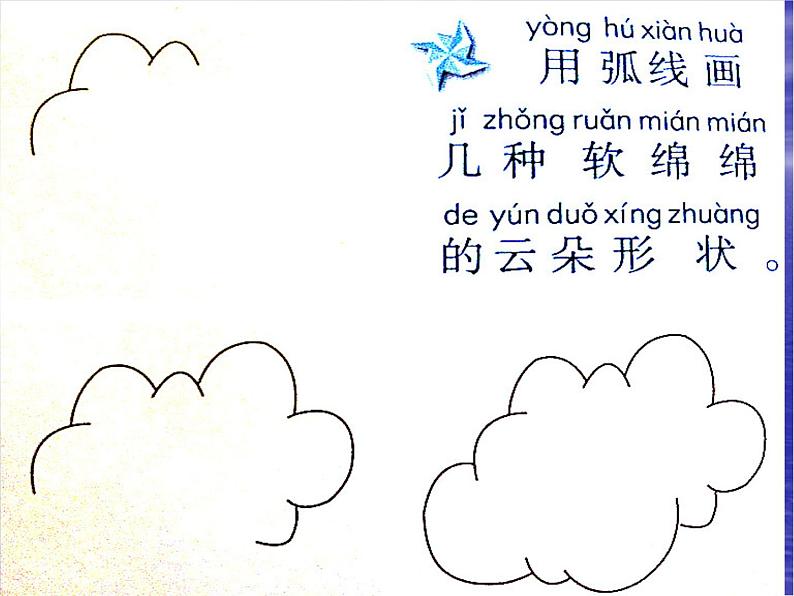 yòng hú xiàn huà
用弧线画
jǐ zhǒng ruǎn mián mián
几种软绵绵
de yún duǒ xíng zhuàng
的云朵形状。